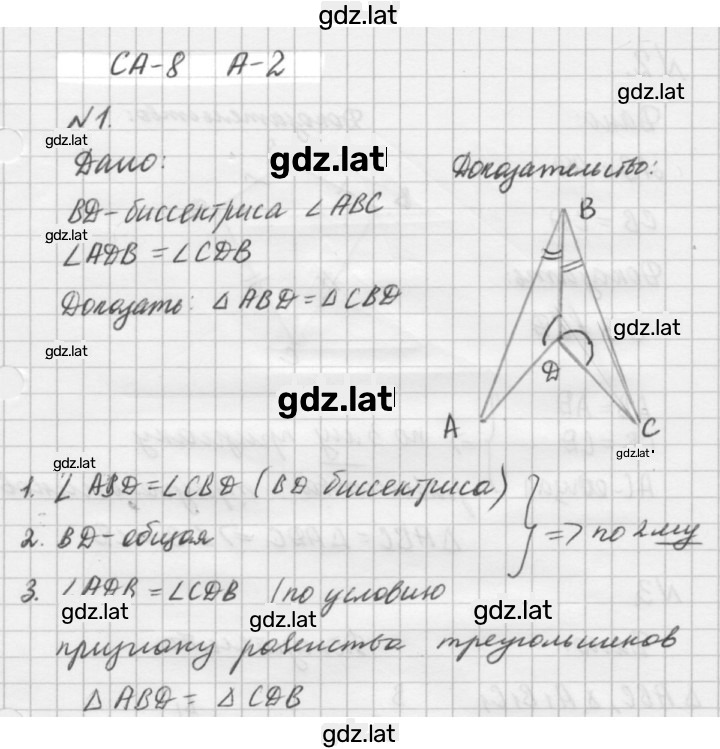 gdz.lat
СА-8 А-2
gdz.lat
N1.
gdz.lat
Дано:
gdz.lat
Доказательство:
BD-биссектриса ∠ABC
B
gdz.lat
∠ADB = ∠CDB
Доказать: △ABD = △CBD
gdz.lat
gdz.lat
D
gdz.lat
A
C
gdz.lat
gdz.lat
1. ∠ABD = ∠CBD (BD биссектриса)
2. BD-общая
=> по 2му
3. ∠ADB = ∠CDB (по условию
gdz.lat
gdz.lat
gdz.lat
признаку равенства треугольников
△ABD = △CDB
gdz.lat